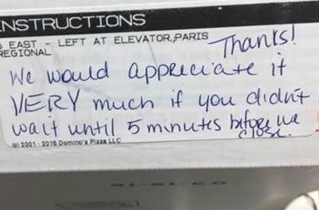 INSTRUCTIONS
EAST - LEFT AT ELEVATOR,PARIS
REGIONAL
Thanks!
We would appreciate it
VERY much if you didn't
wait until 5 minutes before we
close.
2001 - 2015 Domino's Pizza LLC